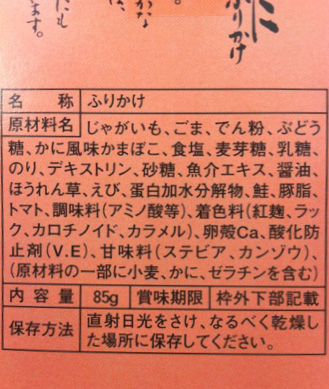 かに
ふりかけ
かな
にも
ます。
す。
名称 ふりかけ
原材料名 じゃがいも、ごま、でん粉、ぶどう
糖、かに風味かまぼこ、食塩、麦芽糖、乳糖
のり、デキストリン、砂糖、魚介エキス、醤油、
ほうれん草、えび、蛋白加水分解物、鮭、豚脂
トマト、調味料(アミノ酸等)、着色料(紅麹、ラ
ック、カロチノイド、カラメル)、卵殻Ca、酸化防
止剤(V.E)、甘味料(ステビア、カンゾウ)、
(原材料の一部に小麦、かに、ゼラチンを含む)
内容量 85g 賞味期限 枠外下部記載
保存方法 直射日光をさけ、なるべく乾燥し
た場所に保存してください。